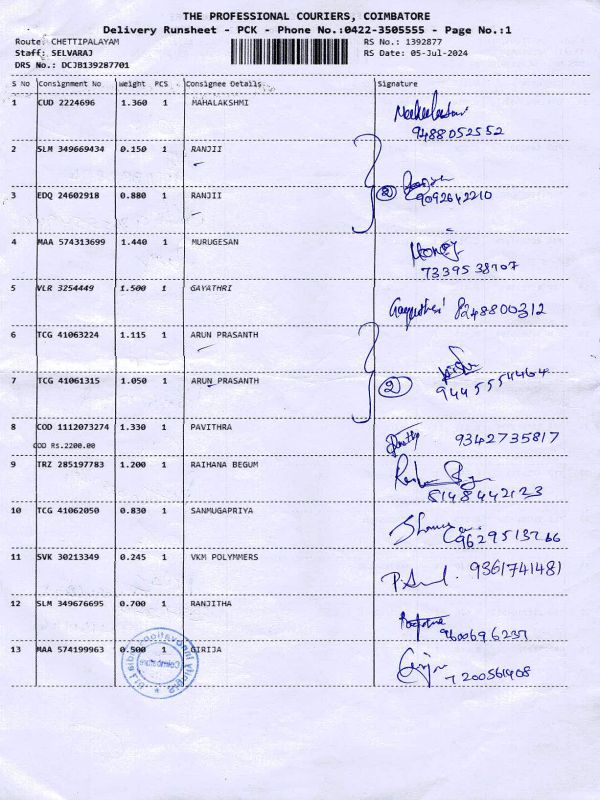 THE PROFESSIONAL COURIERS, COIMBATORE
Delivery Runsheet - PCK - Phone No.:0422-3505555 - Page No.:1
Route: CHETTIPALAYAM RS No.: 1392877
Staff: SELVARAJ RS Date: 05-Jul-2024
DRS No.: DCJB139287701
S No Consignment No Weight PCS Consignee Details Signature
1 CUD 2224696 1.360 1 MAHALAKSHMI
9488052552
2 SLM 349669434 0.150 1 RANJII
3 EDQ 24602918 0.880 1 RANJII 2
9092642210
4 MAA 574313699 1.440 1 MURUGESAN
5 VLR 3254449 1.500 1 GAYATHRI Gayathri 8248800312
6 TCG 41063224 1.115 1 ARUN PRASANTH
7 TCG 41061315 1.050 1 ARUN PRASANTH 2
9445554464
8 COD 1112073274 1.330 1 PAVITHRA 9342735817
COD RS.2200.00
9 TRZ 285197783 1.200 1 RAIHANA BEGUM
8148442123
10 TCG 41062050 0.830 1 SANMUGAPRIYA
11 SVK 30213349 0.245 1 VKM POLYMMERS 9361741481
12 SLM 349676695 0.700 1 RANJITHA
9600696237
13 MAA 574199963 0.500 1 GIRIJA Girija
7200561908
Coimbatore